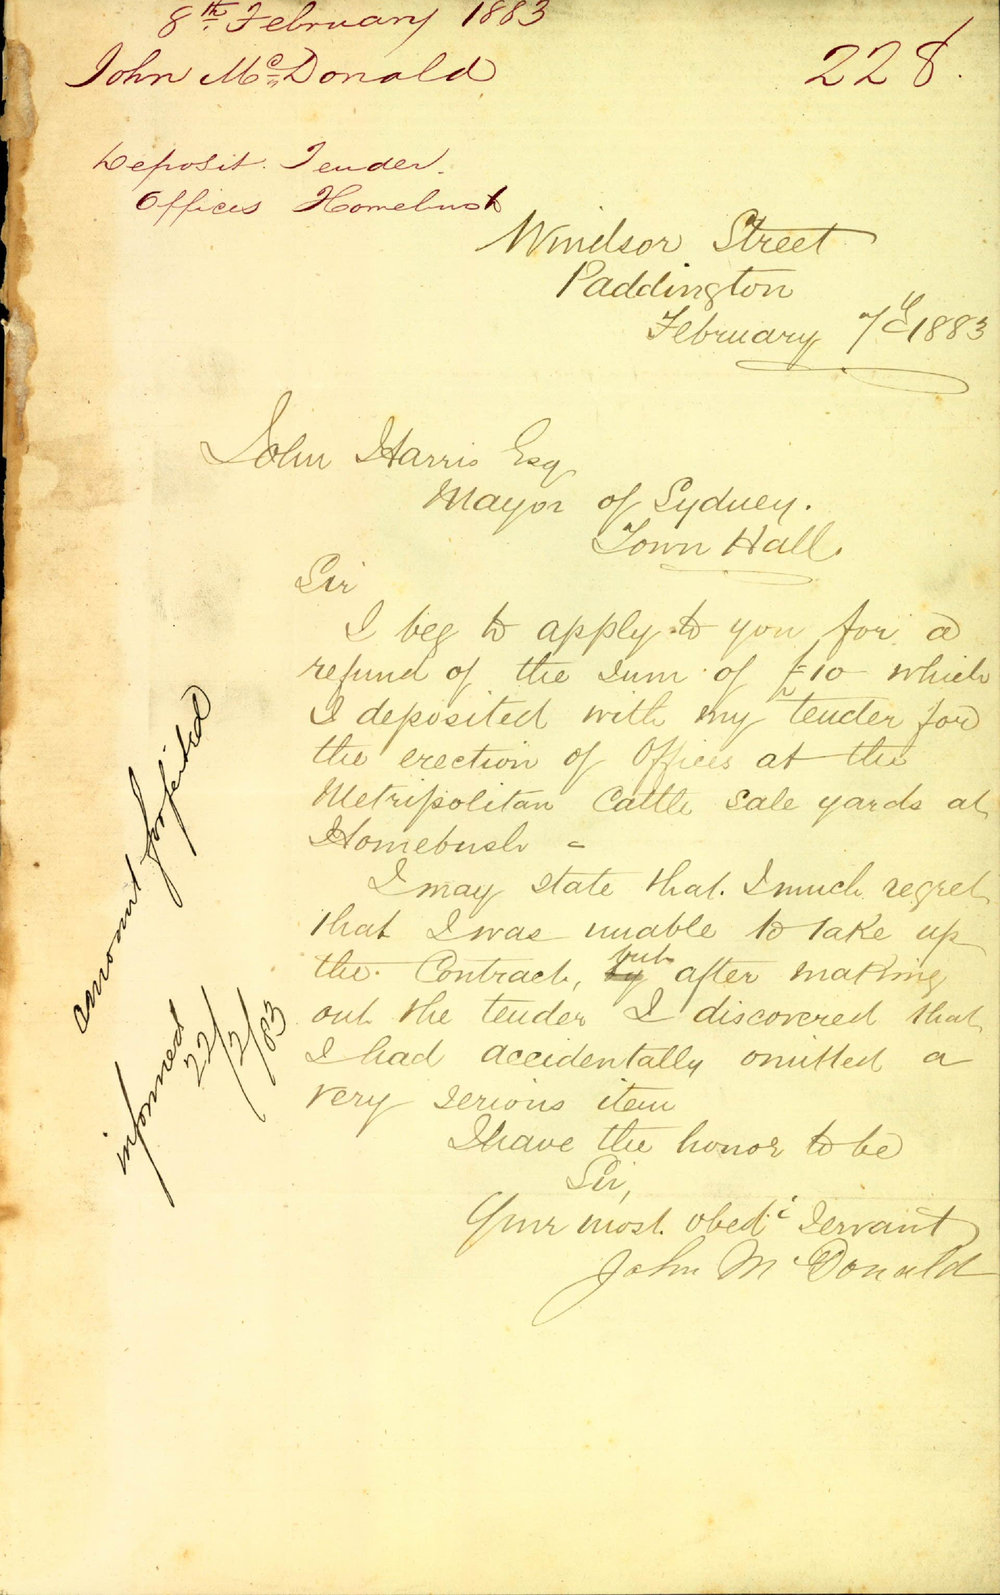 8th February 1883
John McDonald
228.
Deposit. Tender.
Offices Homebush
Windsor Street
Paddington
February 7th 1883
John Harris Esq
Mayor of Sydney.
Town Hall.
Sir
I beg to apply to you for a
refund of the sum of £10 which
I deposited with my tender for
the erection of Offices at the
Metripolitan Cattle Sale yards at
Homebush -
I may state that I much regret
that I was unable to take up
the Contract, but after making
out the tender I discovered that
I had accidentally omitted a
very serious item
I have the honor to be
Sir,
Your most obedt Servant
John McDonald
amount forfeited
informed
22/2/83